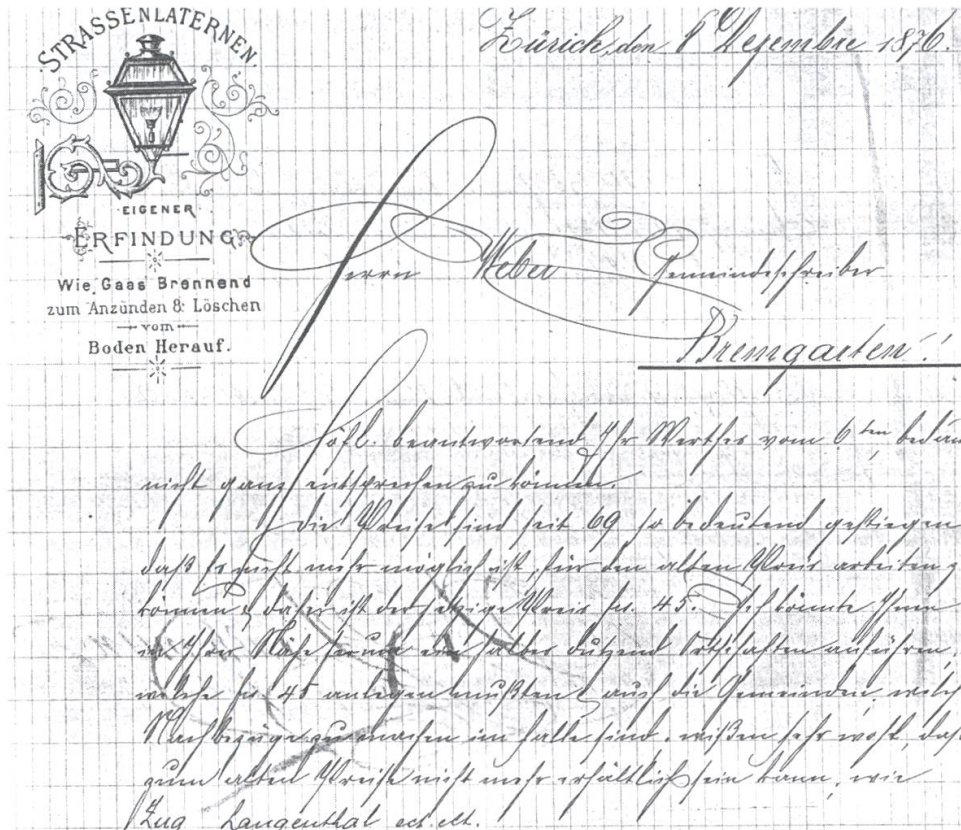 STRASSENLATERNEN.
EIGENER
ERFINDUNG
Wie Gaas Brennend
zum Anzünden & Löschen
vom
Boden Herauf.
Zürich, den 8 Dezembre 1876.
Herrn Weber Gemeindeschreiber
Bremgarten!
Höfl. beantwortend Ihr Werthes vom 6ten
nicht ganz entsprechen zu können.
Die Preise sind seit 69 so bedeutend gestiegen
daß es nicht mehr möglich ist, für den alten Preis arbeiten
können & daher ist der jetzige Preis fr. 45. Ich könnte Ihnen
in Ihrer Nähe herum ein halber dutzend Ortschaften anführen,
welche fr. 45 anlegen mußten & auch die Gemeinden,
Nachbezüge zu machen im Falle sind, wißen sehr wohl,
zum alten Preise nicht mehr erhältlich sein kann, wie
Zug Langenthal